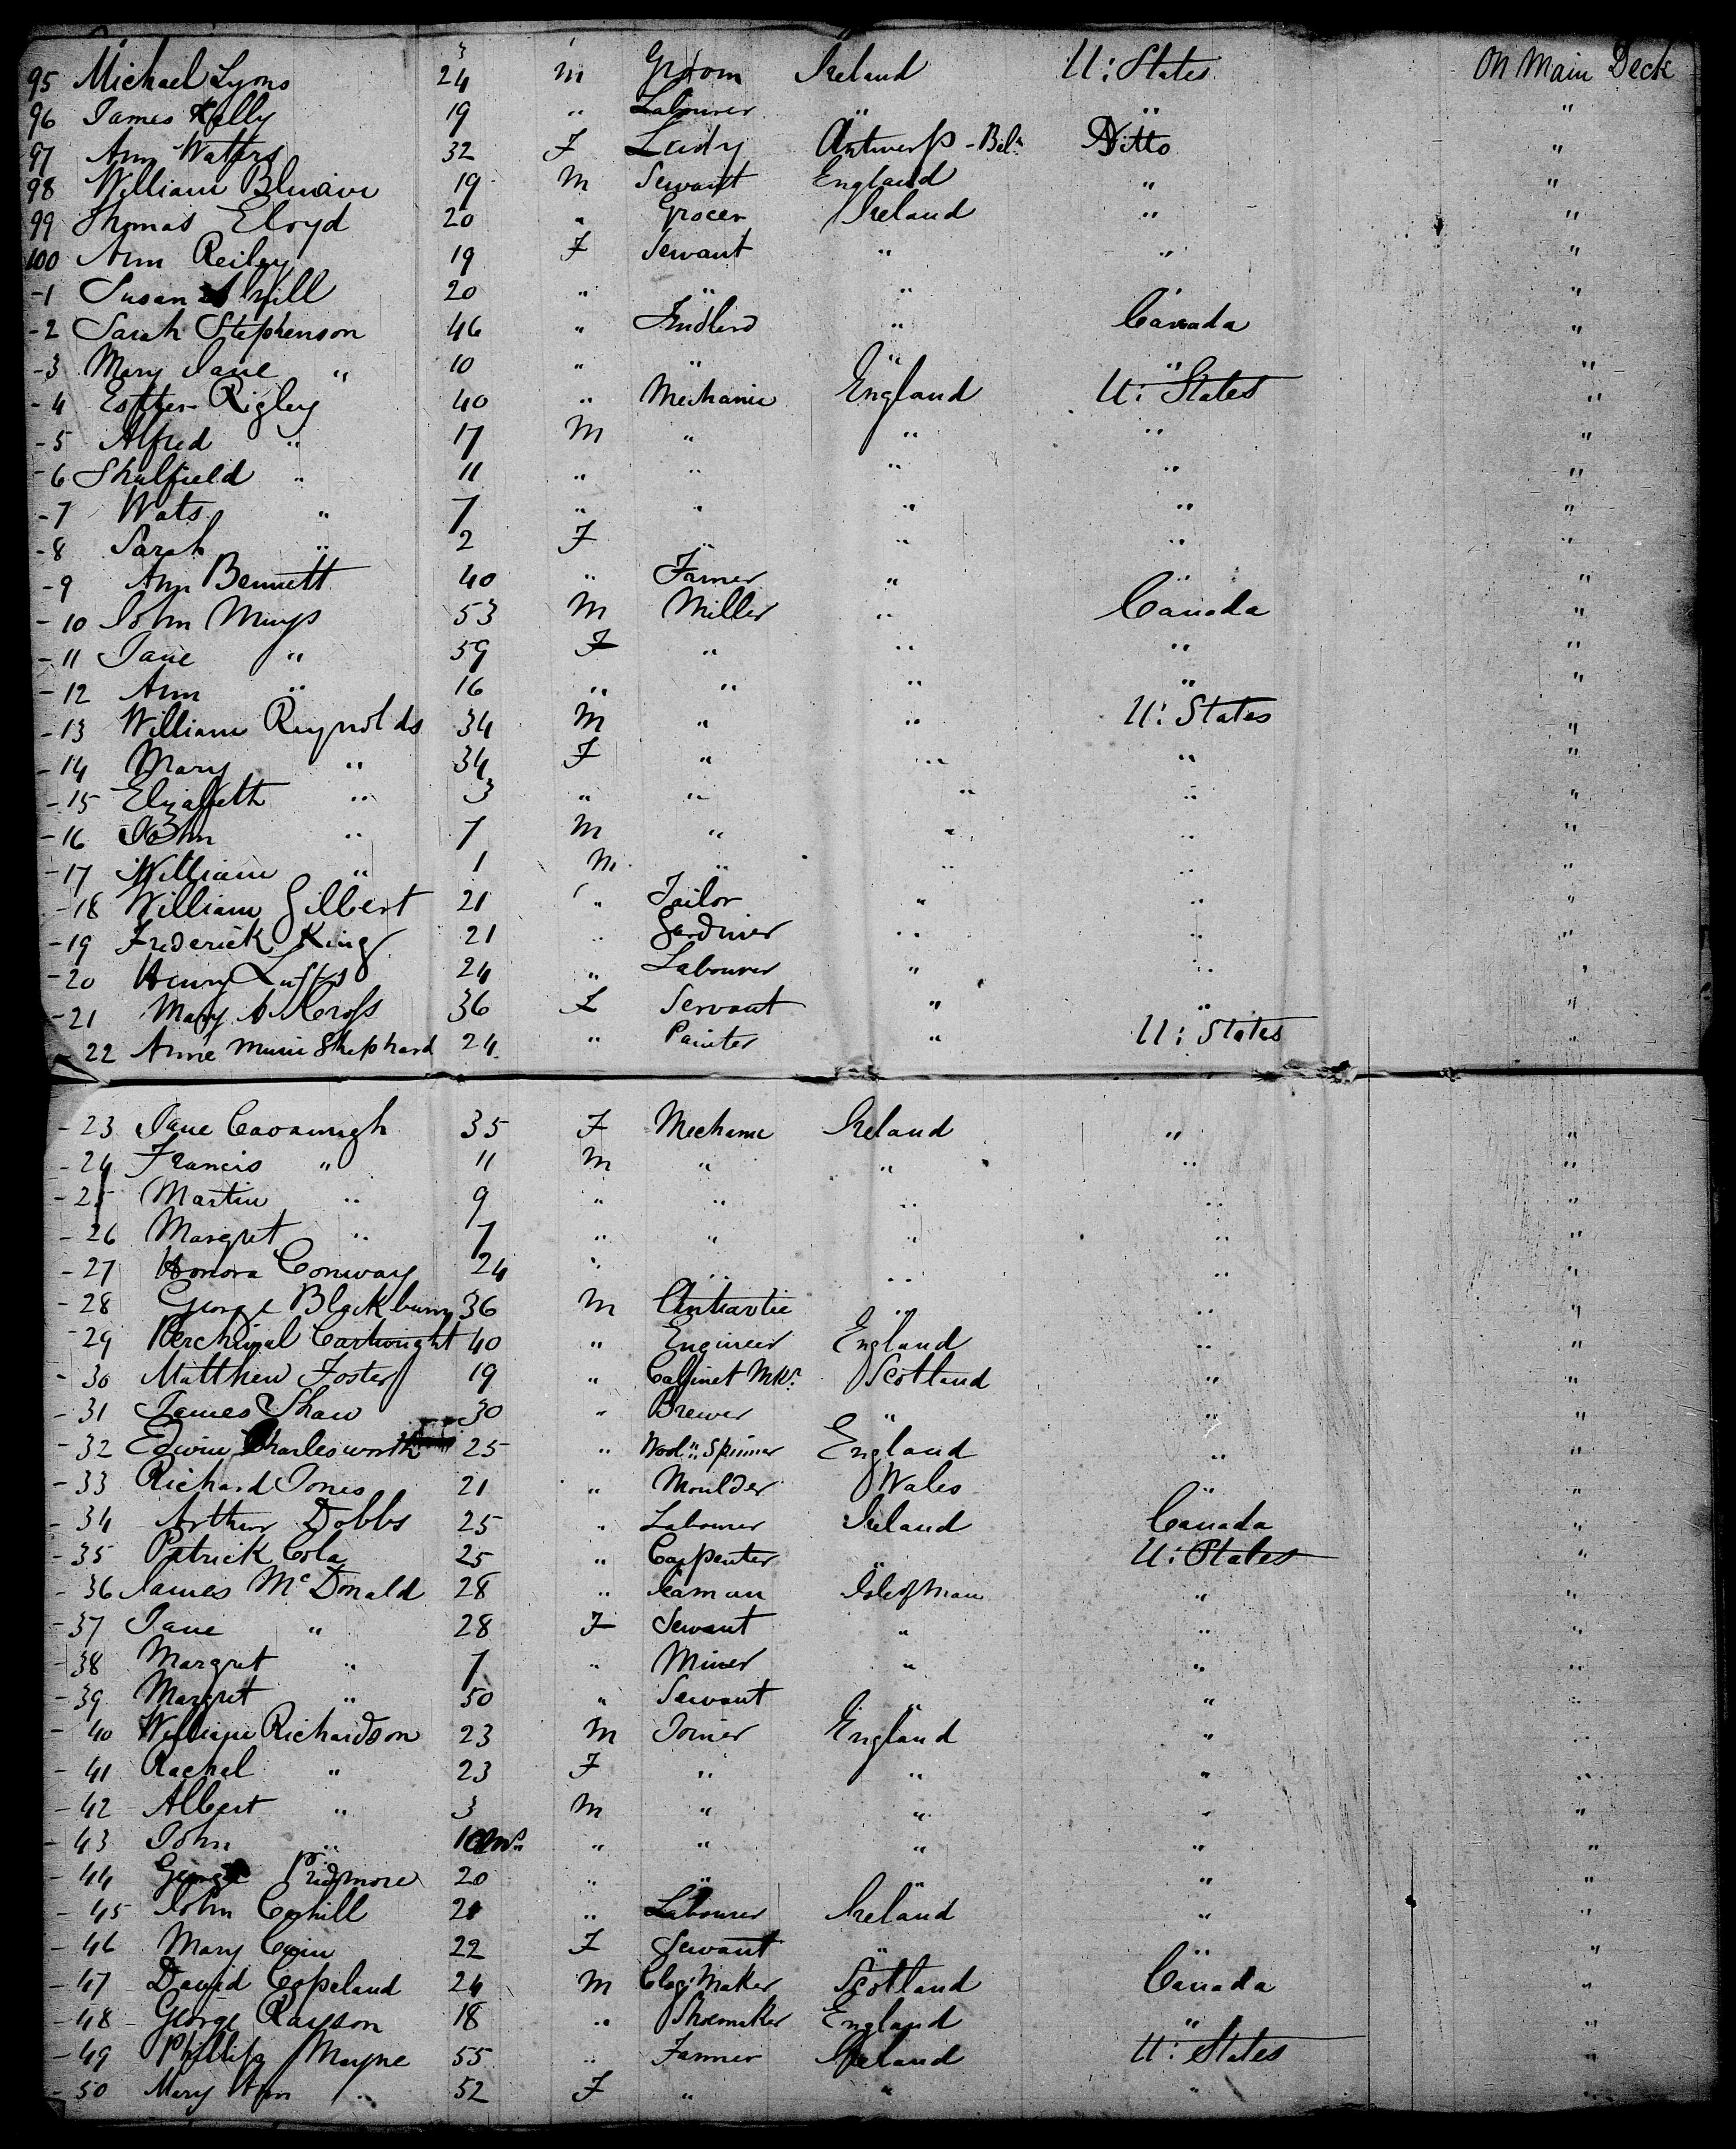 95 Michael Lyons 24 m Groom Ireland U: States On Main Deck
96 James Kelly 19 " Labourer " " "
97 Ann Waters 32 F Lady Antwerp - Bel. Ditto "
98 William 19 m Servant England " "
99 Thomas Eloyd 20 " Grocer Ireland " "
100 Ann Reiley 19 F Servant " " "
-1 Susan 20 " " " " "
-2 Sarah Stephenson 46 " " Canada "
-3 Mary Jane " 10 " " " " "
-4 Esther Rigley 40 " Mechanic England U: States "
-5 Alfred " 17 M " " " "
-6 Shalfield " 11 " " " " "
-7 Wats " 7 " " " " "
-8 Sarah " 2 F " " " "
-9 Ann Bennett 40 " Farmer " " "
-10 John 53 M Miller " Canada "
-11 Jane " 59 F " " " "
-12 Ann " 16 " " " " "
-13 William Reynolds 34 M " " U: States "
-14 Mary " 34 F " " " "
-15 Elizabeth " 3 " " " " "
-16 John " 7 M " " " "
-17 William " 1 M " " " "
-18 William Gilbert 21 " Tailor " " "
-19 Frederick King 21 " Gardiner " " "
-20 Henry 24 " Labourer " " "
-21 Mary A Cross 36 F Servant " " "
22 Anne Shephard 24 " Painter " U: States "
-23 Jane Cavanugh 35 F Mechanic Ireland " "
-24 Francis " 11 M " " " "
-25 Martin " 9 " " " " "
-26 Margret " 7 " " " " "
-27 Honora Conway 24 " " " " "
-28 George Blackburn 36 M " " "
-29 Perchival Cartwright 40 " Engineer England " "
-30 Matthew Foster 19 " Cabinet Mkr. Scotland " "
-31 James Shaw 30 " Brewer " " "
-32 Edwin Charlesworth 25 " Wool: Spinner England " "
-33 Richard Jones 21 " Moulder Wales " "
-34 Arthur Dobbs 25 " Labourer Ireland Canada "
-35 Patrick Cola 25 " Carpenter " U: States "
-36 James McDonald 28 " Seaman Isle of Man " "
-37 Jane " 28 F Servant " " "
-38 Margret " 7 " Miner " " "
-39 Margret " 50 " Servant " " "
-40 William Richardson 23 M Joiner England " "
-41 Rachel " 23 F " " " "
-42 Albert " 3 M " " " "
-43 John " " " " " "
-44 George Pridmore 20 " " " " "
-45 John Cahill 20 " Labourer Ireland " "
-46 Mary Cain 22 F Servant " " "
-47 David Copeland 24 M Clog: Maker Scotland Canada "
-48 George Rayson 18 " Shoemaker England " "
-49 Phillip Mayne 55 " Farmer Ireland U: States "
-50 Mary Ann " 52 F " " " "